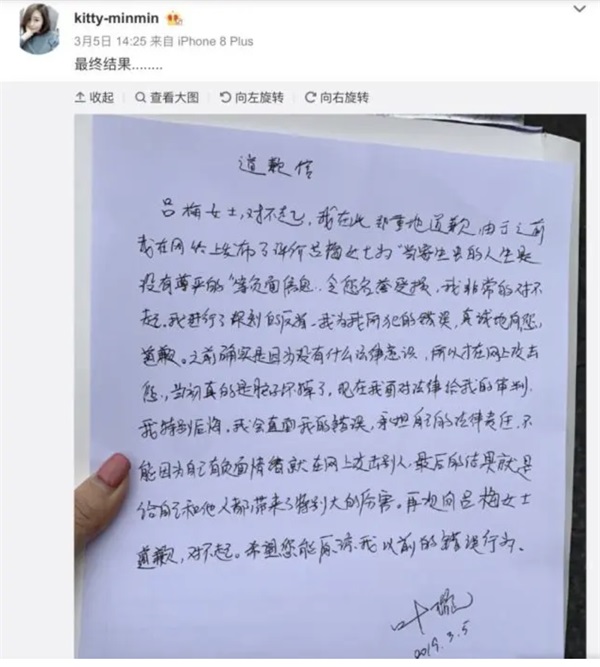 kitty-minmin
3月5日 14:25 来自 iPhone 8 Plus
最终结果........
收起 查看大图 向左旋转 向右旋转
道歉信
吕梅女士，对不起，我在此郑重地道歉，由于之前
我在网络上发布了评价吕梅女士为“当寄生虫的人生是
没有尊严的”等负面信息，令您名誉受损，我非常的对不
起。我进行了深刻的反省，我为我所犯的错误，真诚地向您
道歉。之前确实是因为没有什么法律意识，所以才在网上攻击
您，当初真的是脑子坏掉了，现在我面对法律给我的审判，
我特别后悔，我会直面我的错误，承担自己的法律责任，不
能因为自己有负面情绪就在网上攻击别人，最后的结果就是
给自己和他人都带来了特别大的厉害。再次向吕梅女士
道歉，对不起。希望您能原谅我以前的错误行为。
叶璇
2019.3.5